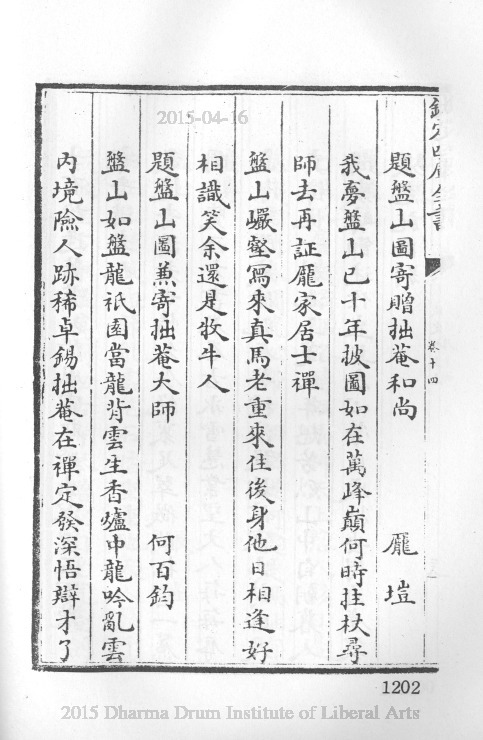 2015-04-16
題盤山圖寄贈拙菴和尚 龎塏
我夢盤山已十年披圖如在萬峰巔何時拄杖尋
師去再証龎家居士禪
盤山巗壑寫來真馬老重來住後身他日相逢好
相識笑余還是牧牛人
題盤山圖蕙寄拙菴大師 何百鈞
盤山如盤龍祇園當龍背雲生香爐中龍吟亂雲
内境險人跡稀卓錫拙菴在禪定發深悟辯才了
卷十四
1202
2015 Dharma Drum Institute of Liberal Arts